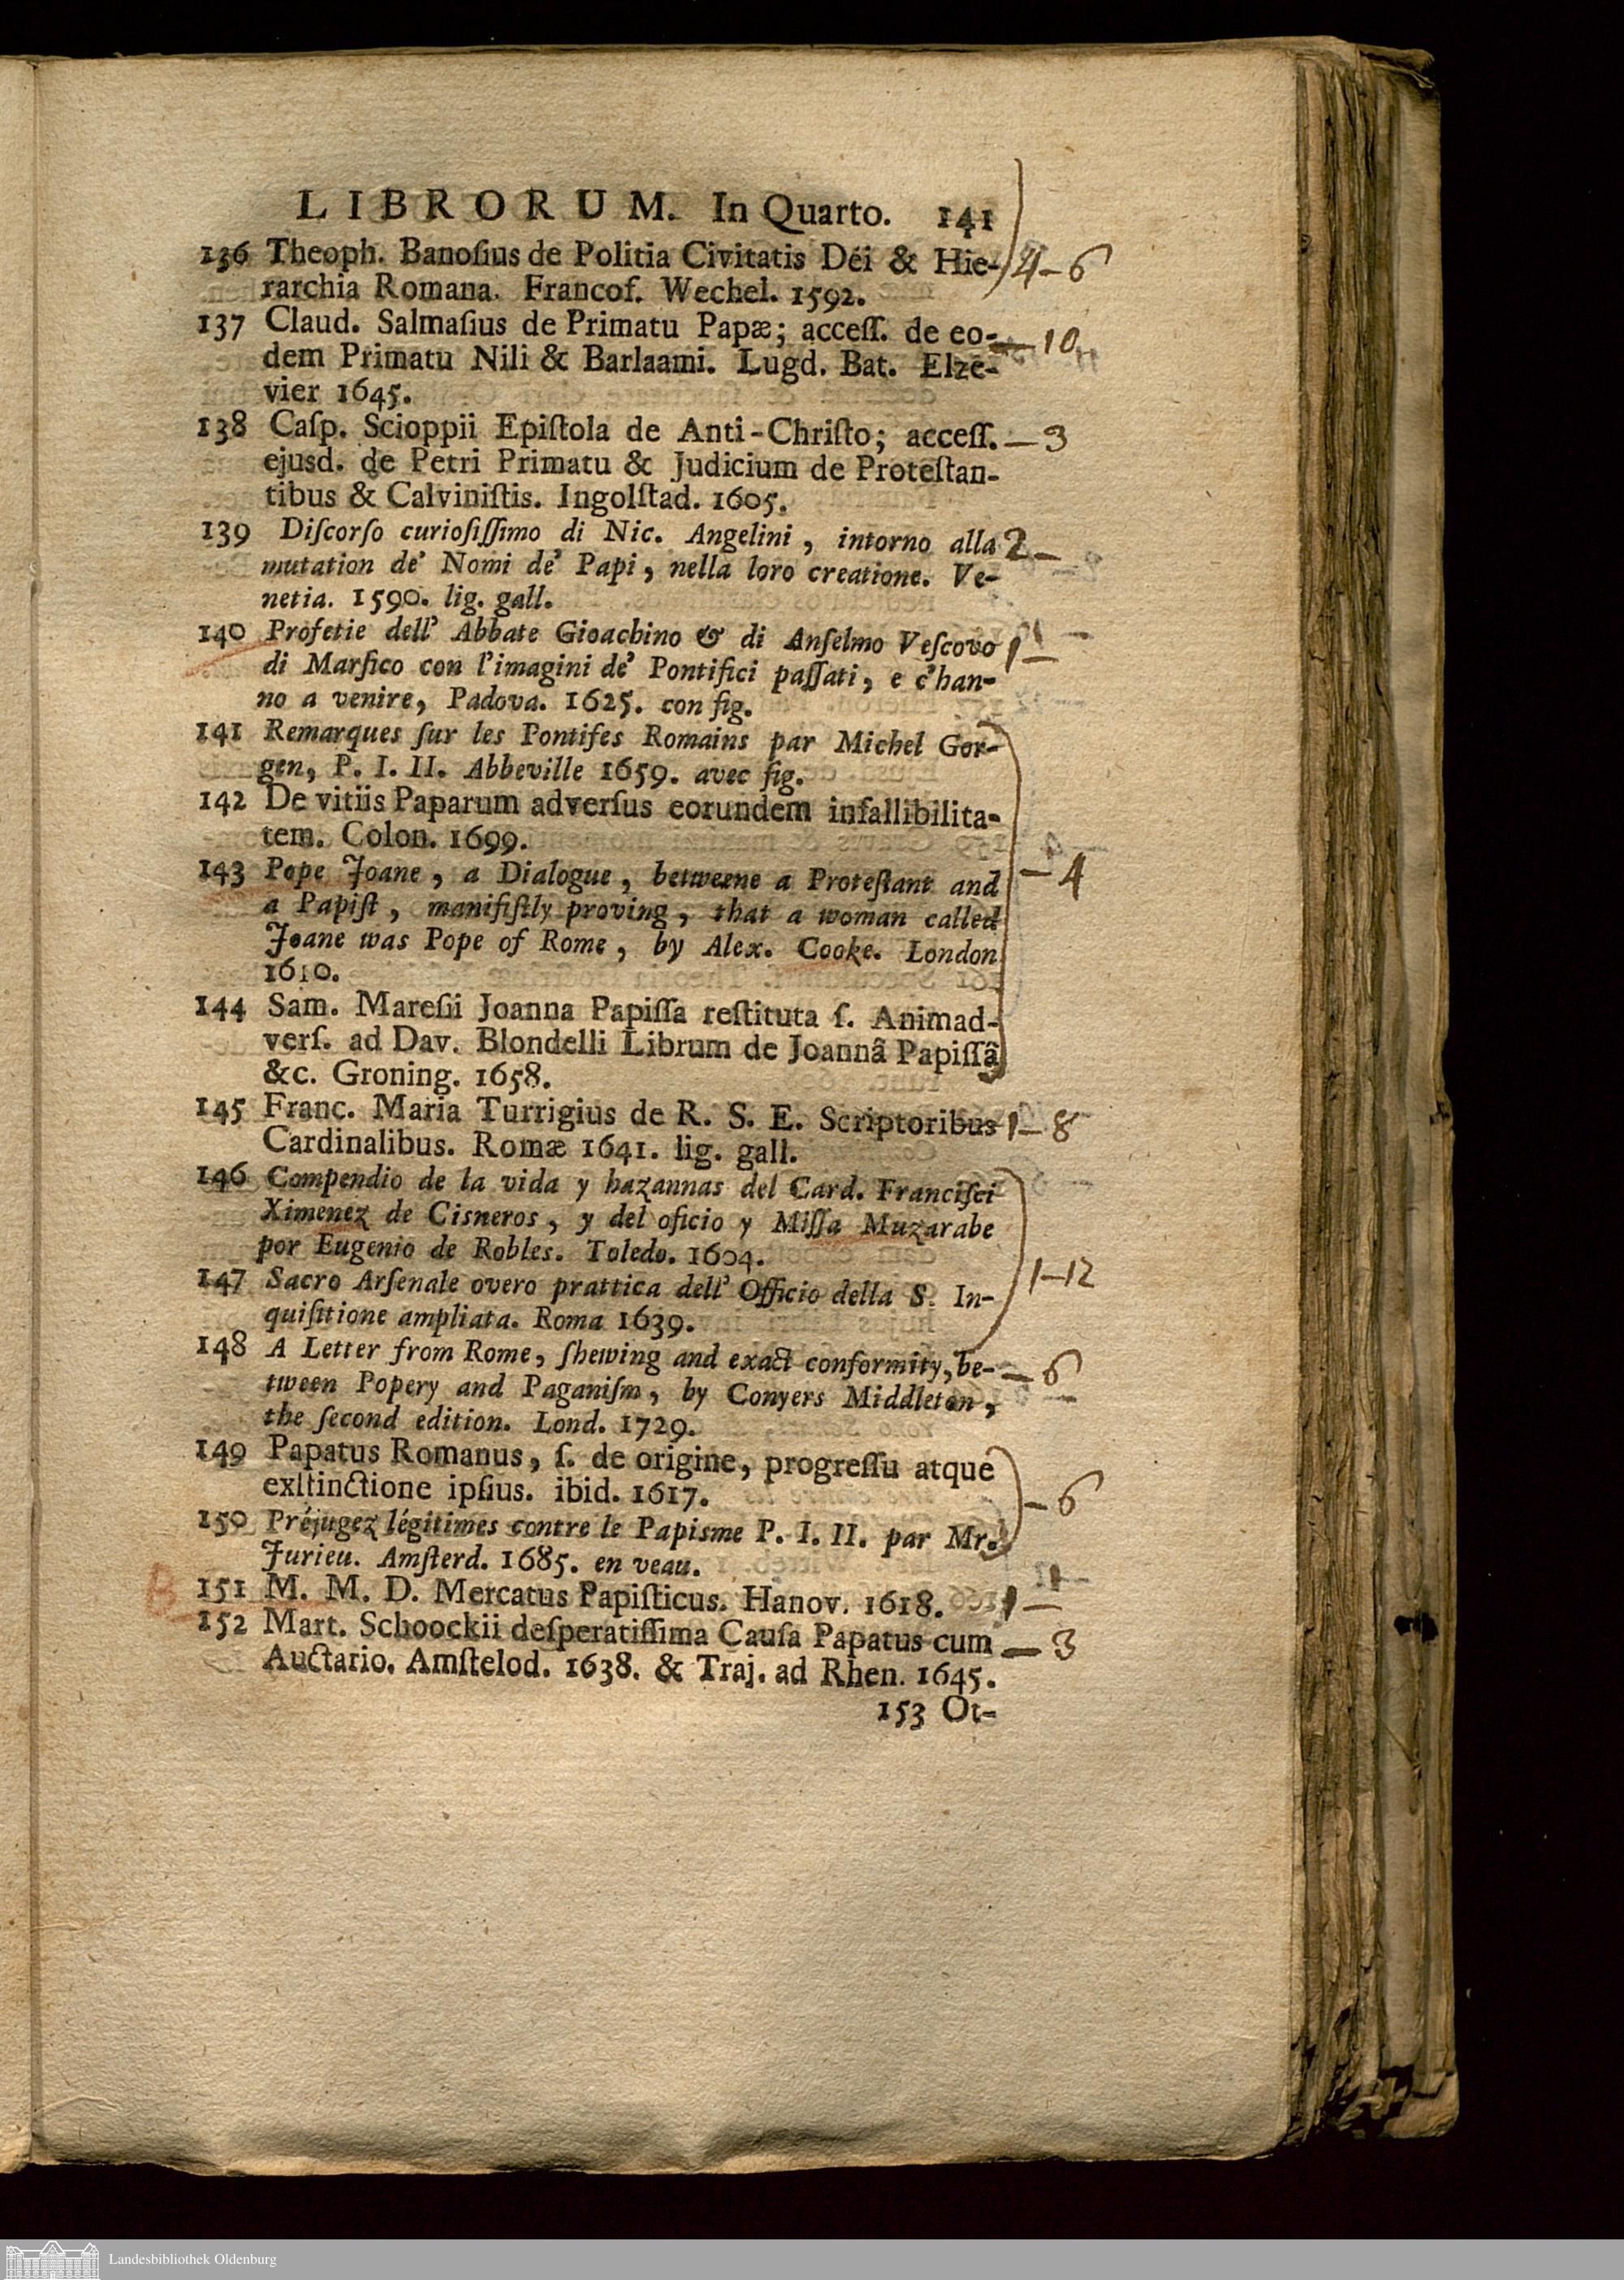 LIBRORUM. In Quarto. 141
136 Theoph. Banoſius de Politia Civitatis Dei & Hie- 4-6
rarchia Romana. Francof. Wechel. 1592.
137 Claud. Salmaſius de Primatu Papæ; acceſſ. de eo- —10
dem Primatu Nili & Barlaami. Lugd. Bat. Elze-
vier 1645.
138 Caſp. Scioppii Epiſtola de Anti-Chriſto; acceſſ. —3
ejusd. de Petri Primatu & Judicium de Proteſtan-
tibus & Calviniſtis. Ingolſtad. 1605.
139 Diſcorſo curioſiſſimo di Nic. Angelini, intorno alla 2—
mutation de' Nomi de' Papi, nella loro creatione. Ve-
netia. 1590. lig. gall.
140 Profetie dell' Abbate Gioachino & di Anſelmo Veſcovo 1—
di Marſico con l'imagini de' Pontifici paſſati, e c'han-
no a venire, Padova. 1625. con fig.
141 Remarques ſur les Pontifes Romains par Michel Gor-
gen, P. I. II. Abbeville 1659. avec fig.
142 De vitiis Paparum adverſus eorundem infallibilita-
tem. Colon. 1699.
143 Pope Joane, a Dialogue, betweene a Proteſtant and —4
a Papiſt, manifiſtly proving, that a woman called
Joane was Pope of Rome, by Alex. Cooke. London
1610.
144 Sam. Mareſii Joanna Papiſſa reſtituta ſ. Animad-
verſ. ad Dav. Blondelli Librum de Joannâ Papiſſâ
&c. Groning. 1658.
145 Franc. Maria Turrigius de R. S. E. Scriptoribus 1-8
Cardinalibus. Romæ 1641. lig. gall.
146 Compendio de la vida y hazannas del Card. Franciſci
Ximenez de Cisneros, y del oficio y Miſſa Muzarabe
por Eugenio de Robles. Toledo. 1604.
147 Sacro Arſenale overo prattica dell' Officio della S. In- 1-12
quiſitione ampliata. Roma 1639.
148 A Letter from Rome, ſhewing and exact conformity, be- —6
tween Popery and Paganiſm, by Conyers Middleton,
the ſecond edition. Lond. 1729.
149 Papatus Romanus, ſ. de origine, progreſſu atque
exſtinctione ipſius. ibid. 1617. —6
150 Préjugez légitimes contre le Papisme P. I. II. par Mr.
Jurieu. Amſterd. 1685. en veau.
B 151 M. M. D. Mercatus Papiſticus. Hanov. 1618. 1—
152 Mart. Schoockii deſperatiſſima Cauſa Papatus cum —3
Auctario. Amſtelod. 1638. & Traj. ad Rhen. 1645.
153 Ot-
Landesbibliothek Oldenburg